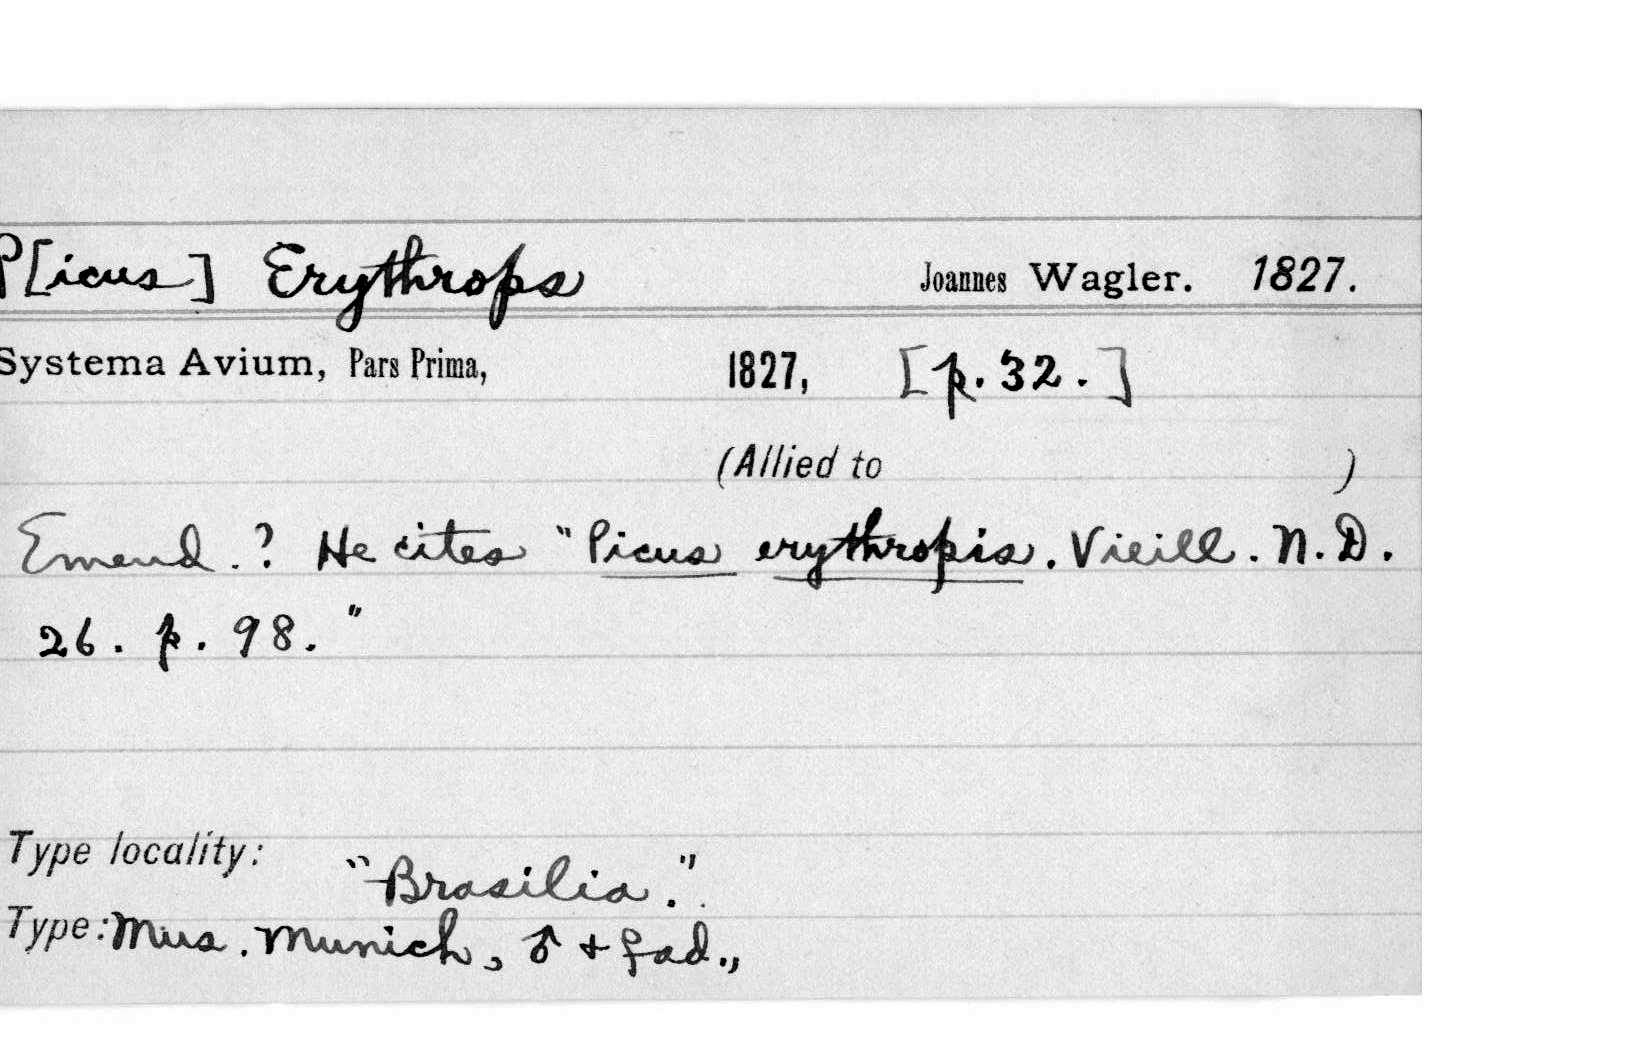 P[icus] Erythrops Joannes Wagler. 1827.
Systema Avium, Pars Prima, 1827, [p. 32.]
(Allied to )
Emend.? He cites "Picus erythropis. Vieill. N. D.
26. p. 98."
Type locality: "Brasilia."
Type: Mus. Munich, ♂ + ♀ ad.,